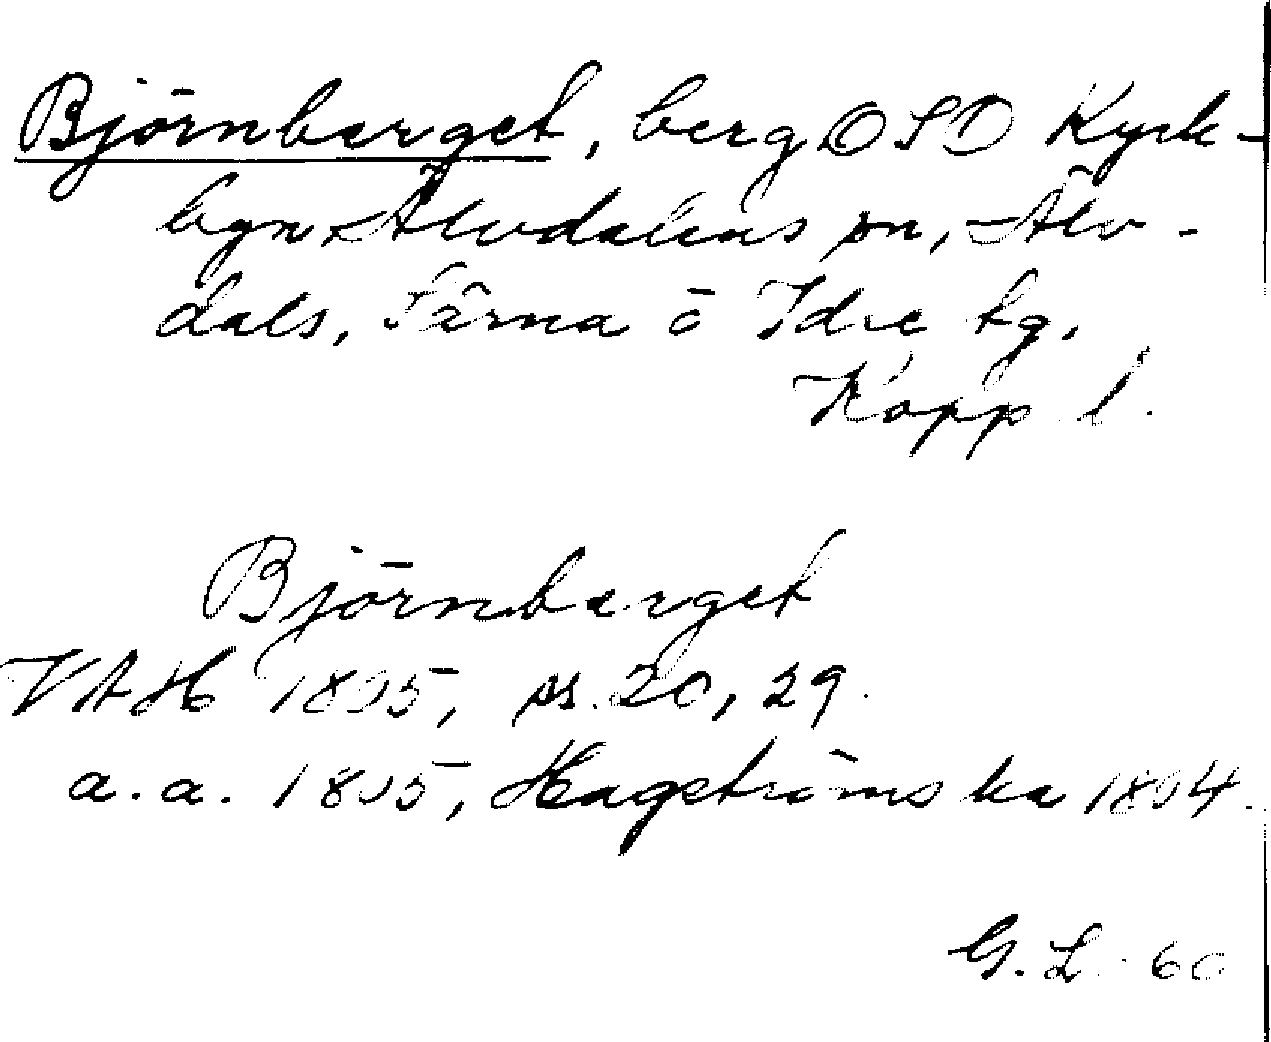 Björnberget, berg OSO Kyrk-
byn, Älvdalens sn, Älv-
dals, Särna ö Idre tg.
Kopp l.
Björnberget
VAH 1805, ss. 20, 29.
a. a. 1805, Hagströms ka 1804.
G. L. 60